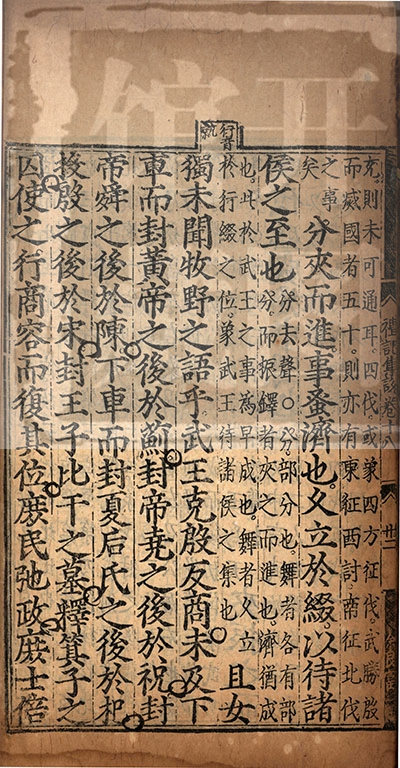 禮記集說卷十八
廿二
行音
克則未可通耳四伐或象四方征伐武勝殷
而滅國者五十則亦有東征西討南征北伐
之事
矣
分夾而進事蚤濟也久立於綴以待諸
侯之至也
分去聲○分部分也舞者各有部
分而振鐸者夾之而進也濟猶成
也此於武王之事為早成也舞者久立
於行綴之位象武王待諸侯之集也
且女
獨未聞牧野之語乎武王克殷反商未及下
車而封黃帝之後於薊封帝堯之後於祝封
帝舜之後於陳下車而封夏后氏之後於杞
投殷之後於宋封王子比干之墓釋箕子之
囚使之行商容而復其位庶民弛政庶士倍